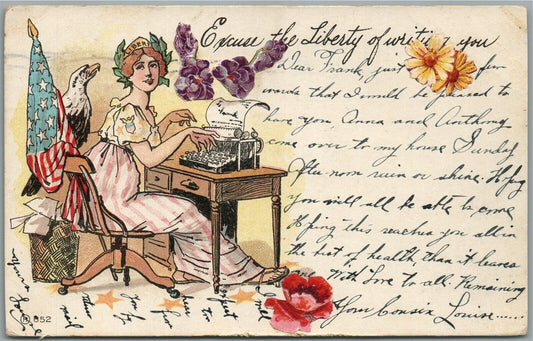 Excuse the Liberty of writing you
LIBERTY
Dear Frank, just a few
words that I would be pleased to
have you Anna and Anthony
come over to my house Sunday
After noon rain or shine. Hoping
you will all be able to come
Hoping this reaches you all in
the best of health, than it leaves
With Love to all. Remaining
Your Cousin Louise......
852